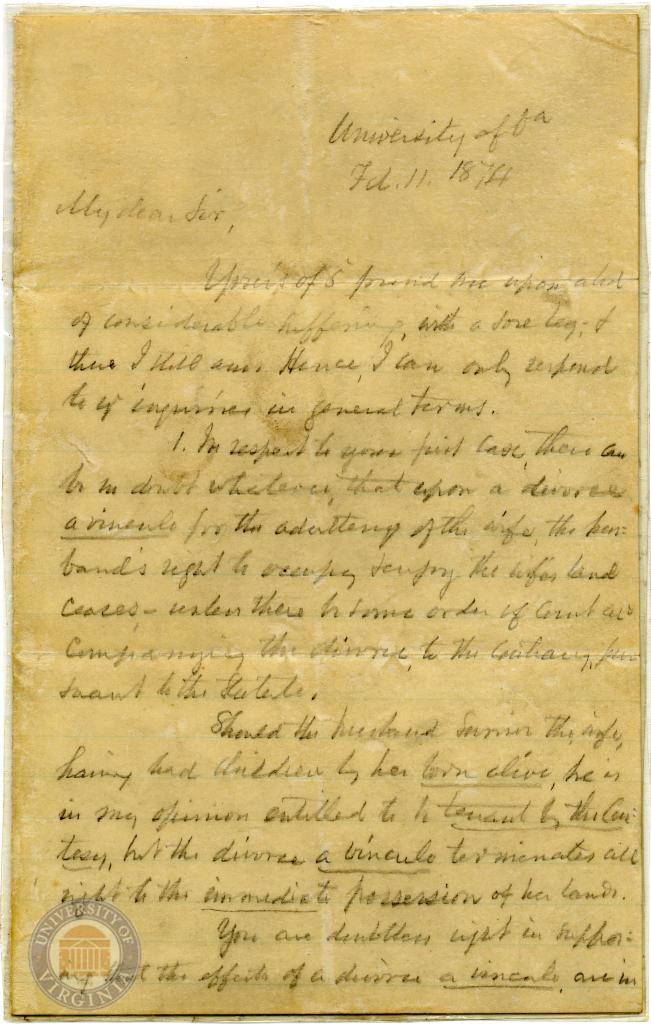 University of Va
Feb. 11. 1874
My dear Sir,
Yours of 5 found me upon a bed
of considerable suffering, with a sore leg; &
there I still am. Hence, I can only respond
to yr inquiries in general terms.
1. In respect to your first case, there can
be no doubt whatever, that upon a divorce
a vinculo for the adultery of the wife, the hus-
band's right to occupy & enjoy the wife's land
ceases - unless there be some order of Court ac-
companying the divorce, to the contrary, pur
suant to the Statute.
Should the husband survive the wife,
having had children by her born alive, he is
in my opinion entitled to be tenant by the Cur
tesy, but the divorce a vinculo terminates all
right to the immediate possession of her lands.
You are doubtless right in suppos-
ing that the effects of a divorce a vinculo, are in
UNIVERSITY OF VIRGINIA